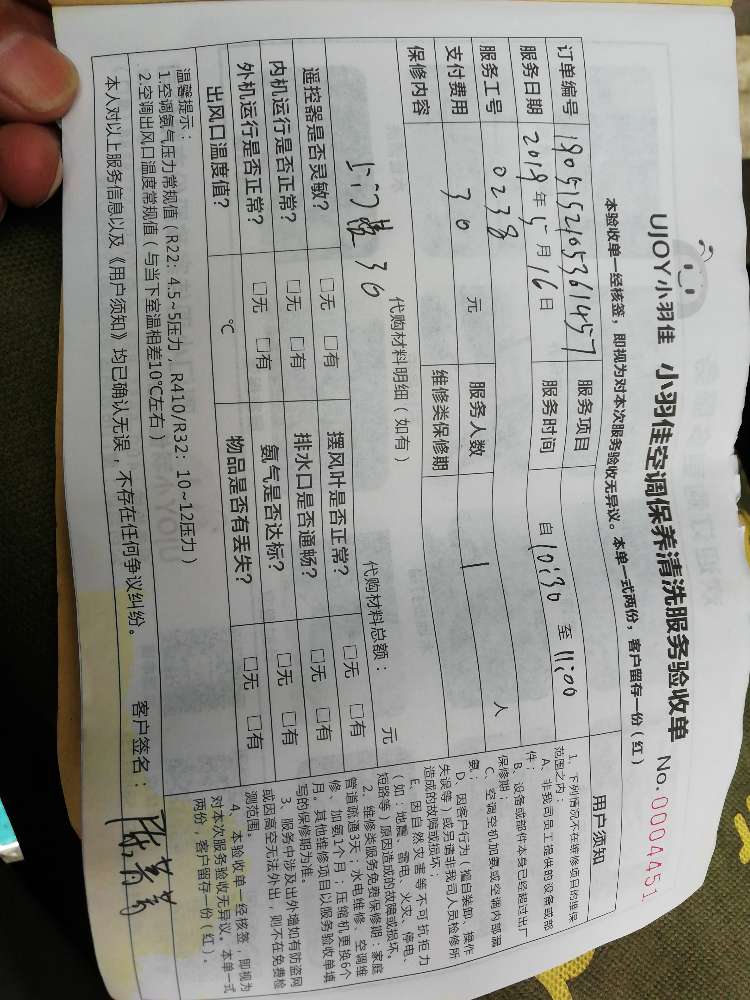 UJOY小羽佳 小羽佳空调保养清洗服务验收单 No.0004451
本验收单一经核签，即视为对本次服务验收无异议。本单一式两份，客户留存一份(红)
订单编号 1905152105361457 服务项目
服务日期 2019年5月16日 服务时间 自10:30至11:00
服务工号 0238 服务人数 1 人
支付费用 30 元 维修类保修期
保修内容
代购材料明细（如有） 代购材料总额： 元
上门费30
遥控器是否灵敏？ □无 □有 摆风叶是否正常？ □无 □有
内机运行是否正常？ □无 □有 排水口是否通畅？ □无 □有
外机运行是否正常？ □无 □有 氨气是否达标？ □无 □有
出风口温度值？ ℃ 物品是否有丢失？ □无 □有
温馨提示：
1.空调氨气压力常规值（R22：4.5~5压力，R410/R32：10~12压力）
2.空调出风口温度常规值（与当下室温相差10℃左右）
本人对以上服务信息以及《用户须知》均已确认无误，不存在任何争议纠纷。 客户签名：
用户须知
1、下列情况不在维修项目的理保
范围之内：
A、非我司员工提供的设备或部
件；
B、设备或部件本身已经超过出厂
保修期；
C、空调空机加氨或空调内部漏
氨；
D、因客户行为（擅自装卸、操作
失误等）或另请非我司人员检修所
造成的故障或损坏；
E、因自然灾害等不可抗拒力
（如：地震、雷电、火灾、停电、
短路等）原因造成的故障或损坏。
2、维修类服务免费保修期：家庭
管道疏通3天；水电维修、空调维
修、加氨1个月；压缩机更换6个
月。其他维修项目以服务验收单填
写的保修期为准。
3、服务中涉及出外墙如有防盗网
或因高空无法外出，则不在免费检
测范围。
4、本验收单一经核签，即视为
对本次服务验收无异议。本单一式
两份，客户留存一份（红）。